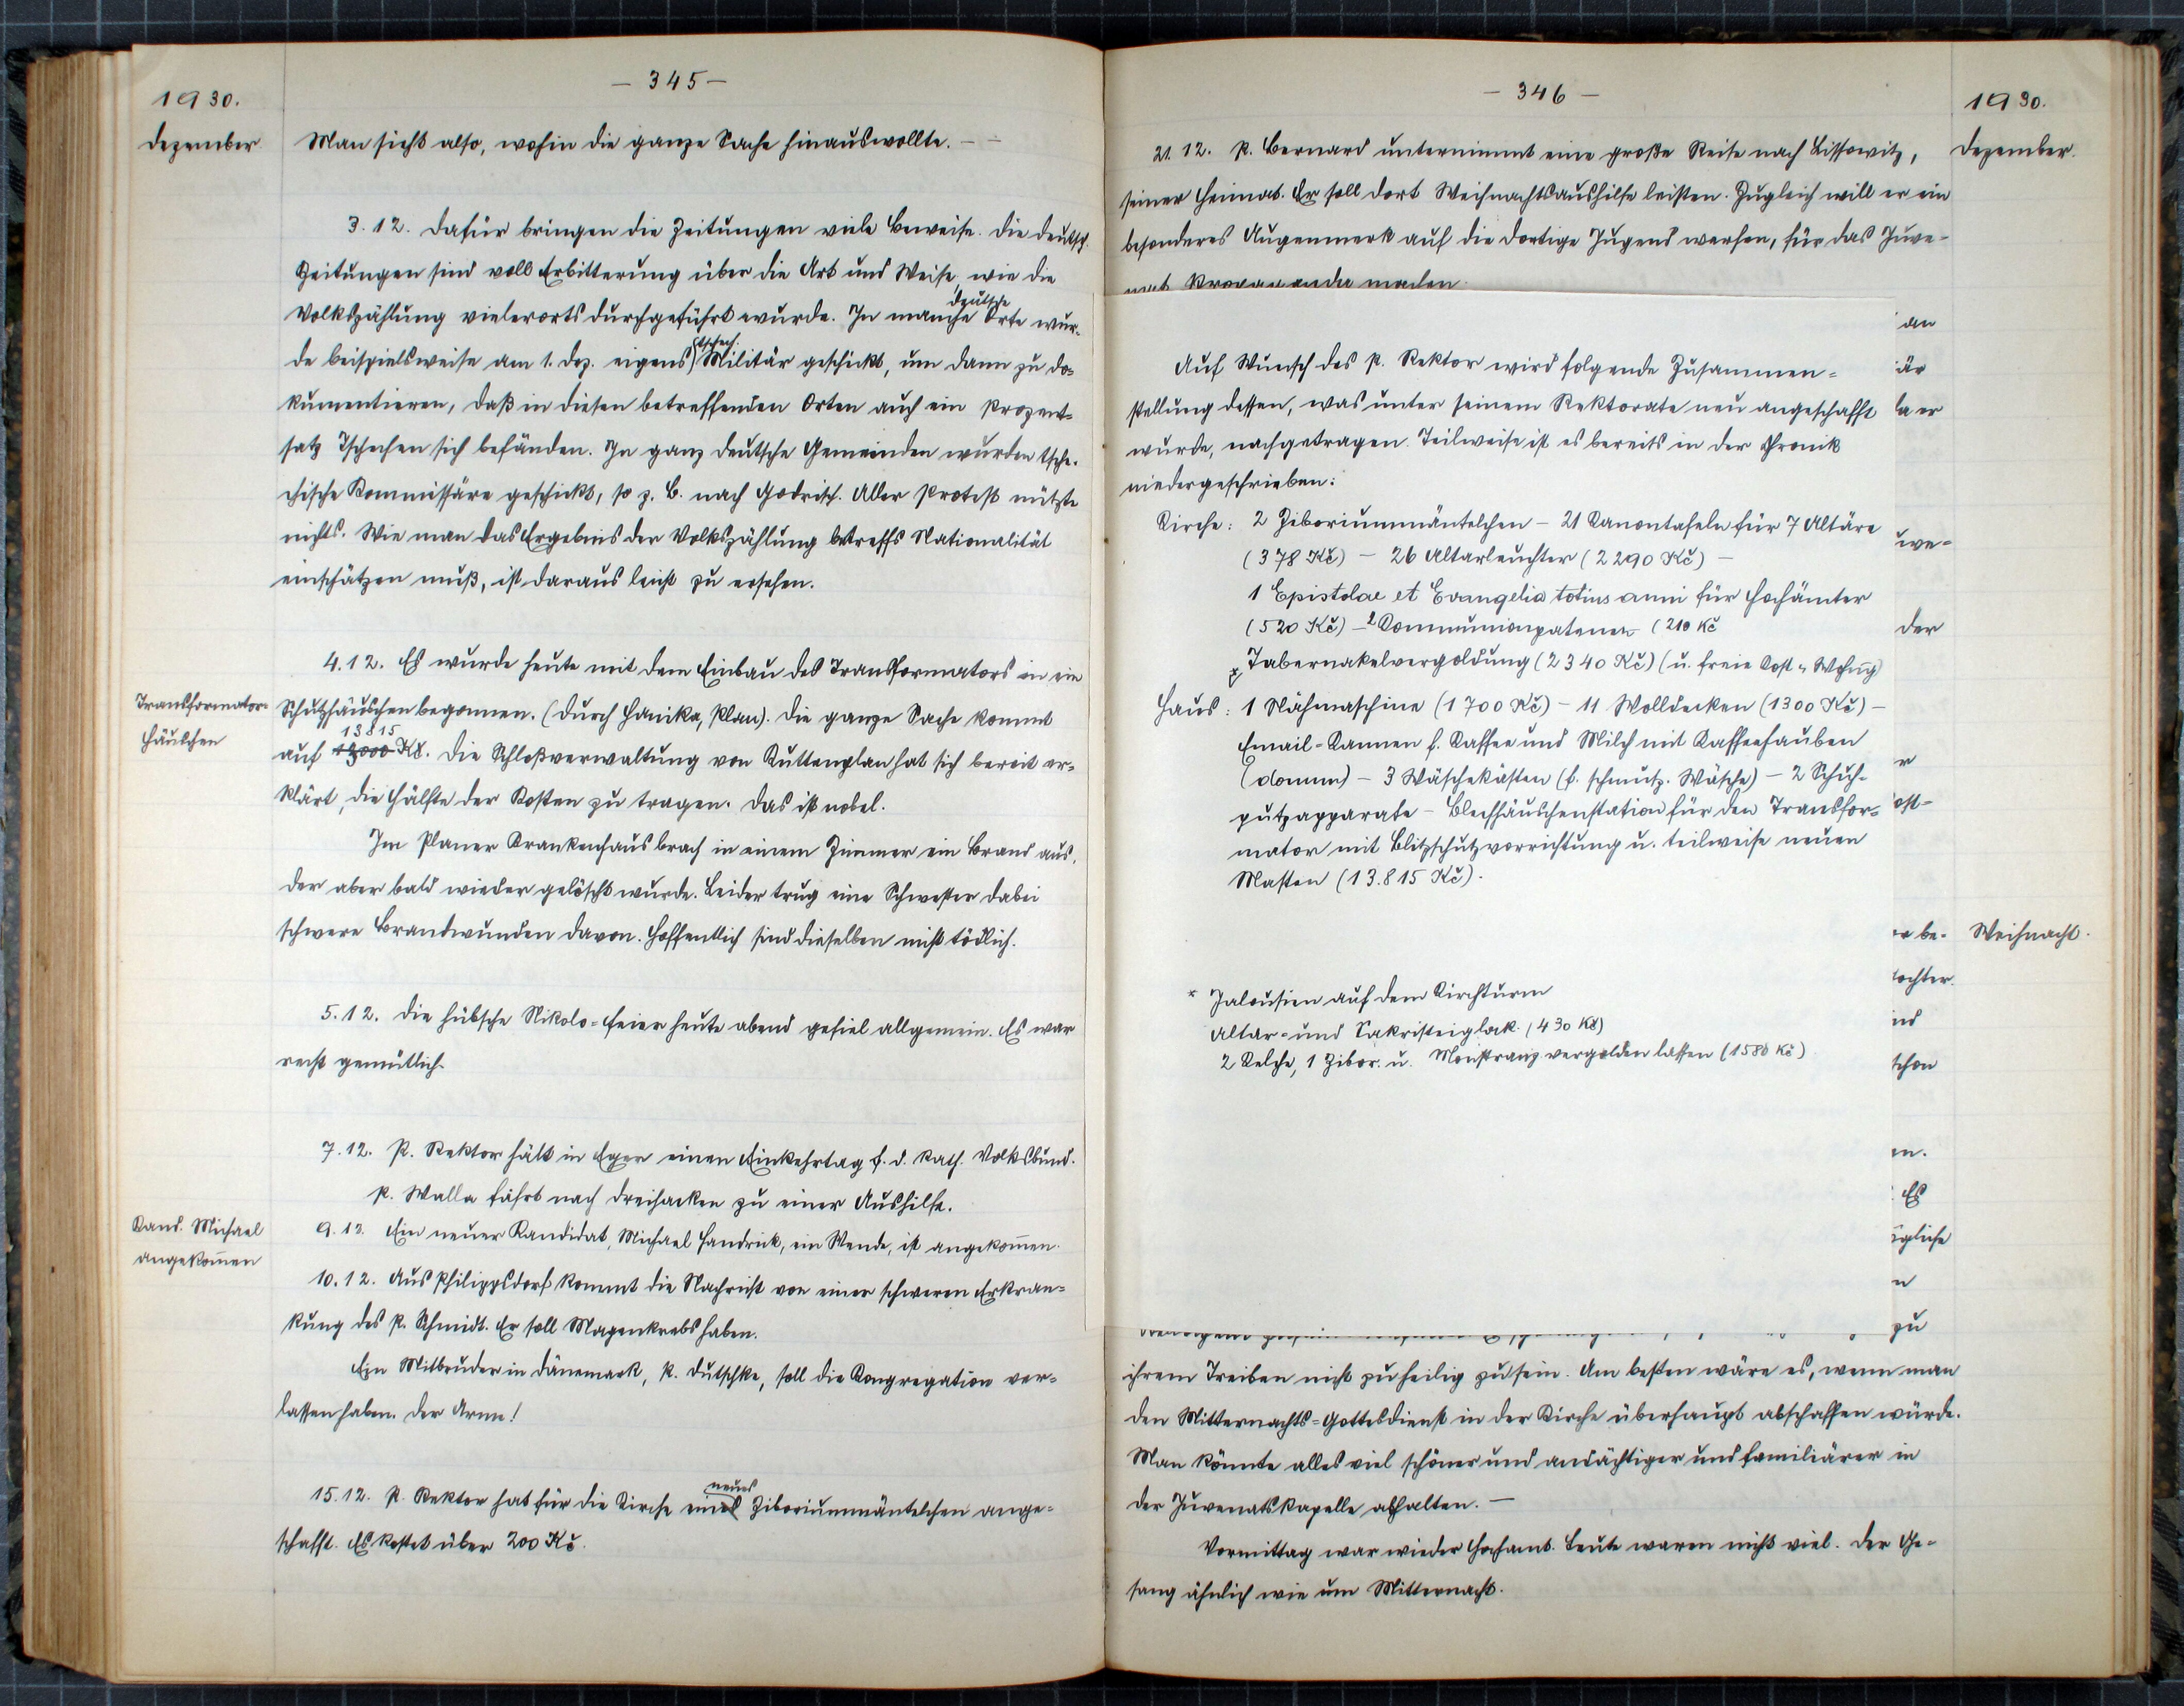 - 345 -
1930.
Dezember
Man sieht also, wohin die ganze Sache hinauswollte. - -
3.12. Dafür bringen die Zeitungen viele Beweise. Die deutsch.
Zeitungen sind voll Erbitterung über die Art und Weise, wie die
Volkszählung vielerorts durchgeführt wurde. In manche deutsche Orte wur-
de beispielsweise am 1. Dez. eigens tschech. Militär geschickt, um dann zu do=
kumentieren, daß in diesen betreffenden Orten auch ein Prozent=
satz Tschechen sich befänden. In ganz deutsche Gemeinden wurden tsche-
chische Kommissäre geschickt, so z. B. nach Godrisch. Aller Protest nützte
nichts. Wie man das Ergebnis der Volkszählung betreffs Nationalität
einschätzen muß, ist daraus leicht zu ersehen.
4.12. Es wurde heute mit dem Einbau des Transformators in ein
Transformator=
häuschen
Schutzhäuschen begonnen. (Durch Hanika, Plan). Die ganze Sache kommt
13815
auf 13000 Kč. Die Schloßverwaltung von Kuttenplan hat sich bereit er=
klärt, die Hälfte der Kosten zu tragen. Das ist nobel.
Im Planer Krankenhaus brach in einem Zimmer ein Brand aus,
der aber bald wieder gelöscht wurde. Leider trug eine Schwester dabei
schwere Brandwunden davon. Hoffentlich sind dieselben nicht tödlich.
5.12. Die hübsche Nikolo=feier heute abend gefiel allgemein. Es war
recht gemütlich.
7.12. P. Rektor hält in Eger einen Einkehrtag f. d. Kath. Volksbund.
P. Walla fährt nach Dreihacken zu einer Aushilfe.
Kand. Michael
angekom̄en
9.12. Ein neuer Kandidat, Michael Handrick, ein Wende, ist angekom̄en.
10.12. Aus Philippsdorf kommt die Nachricht von einer schweren Erkran=
kung des P. Schmidt. Er soll Magenkrebs haben.
Ein Mitbruder in Dänemark, P. Dutschke, soll die Kongregation ver=
lassen haben. Der Arme!
15.12. P. Rektor hat für die Kirche ein neues Ziboriummäntelchen ange=
schafft. Es kostet über 200 Kč.
- 346 -
1930.
Dezember.
21.12. P. Bernard unternimmt eine große Reise nach Lissowitz,
seiner Heimat. Er soll dort Weihnachtsaushilfe leisten. Zugleich will er ein
besonderes Augenmerk auf die dortige Jugend werfen, für das Juve-
nat Propaganda machen.
Auf Wunsch des P. Rektor wird folgende Zusammen=
stellung dessen, was unter seinem Rektorate neu angeschafft
wurde, nachgetragen. Teilweise ist es bereits in der Chronik
niedergeschrieben:
Kirche: 2 Ziboriummäntelchen - 21 Kanontafeln für 7 Altäre
(378 Kč) - 26 Altarleuchter (2290 Kč) -
1 Epistolae et Evangelia totius anni für Hochämter
(520 Kč) - 2 Kommunionpatenen (210 Kč
* Tabernakelvergoldung (2340 Kč) (u. freie Kost u. Wohn̄g)
Haus: 1 Nähmaschine (1700 Kč) - 11 Wolldecken (1300 Kč) -
Email=Kannen f. Kaffee und Milch mit Kaffeehauben
(donum) - 3 Wäschekästen (f. schmutz. Wäsche) - 2 Schuh-
putzapparate - Blechhäuschenstation für den Transfor=
mator mit Blitzschutzvorrichtung u. teilweise neuen
Masten (13.815 Kč).
* Jalousien auf dem Kirchturm
Altar= und Sakristeiglock. (430 Kč)
2 Kelche, 1 Zibor. u. Monstranz vergolden lassen (1580 Kč)
den
är
da er
uwe=
der
r
ost=
er be-
Weihnacht.
ochter.
ind
schon
en.
Es
ögliche
n
zu
ihrem Treiben nicht zu heilig zu sein. Am besten wäre es, wenn man
den Mitternachts=Gottesdienst in der Kirche überhaupt abschaffen würde.
Man könnte alles viel schöner und andächtiger und familiärer in
der Juvenatskapelle abhalten. -
Vormittag war wieder Hochamt. Leute waren nicht viel. Der Ge-
sang ähnlich wie um Mitternacht.